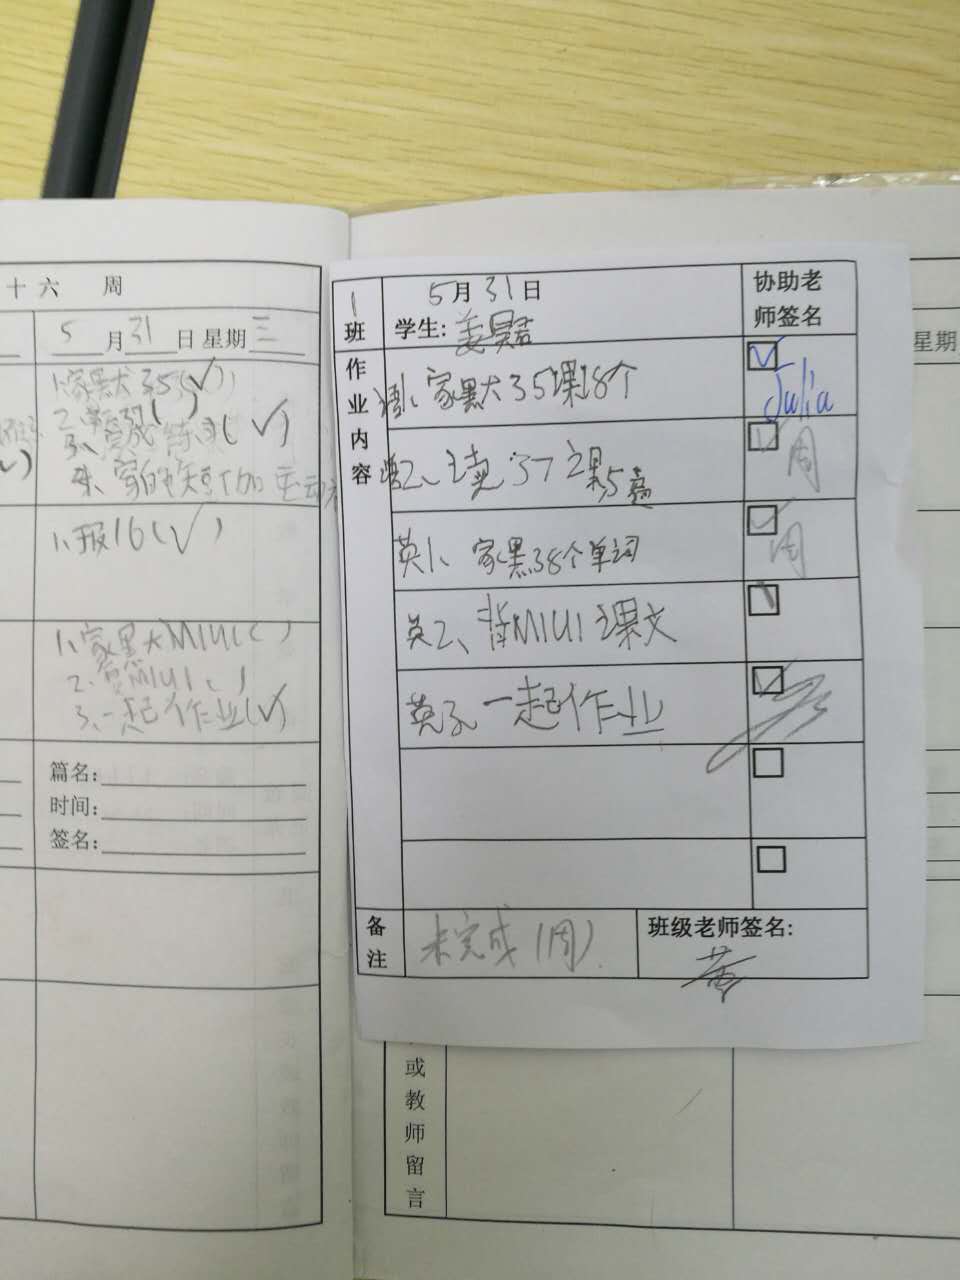 十六 周
5月31日 星期三
1、家默大35(√)
2、
3、完成练习(√)
4、
1、报16(√)
1、家默大M1U1( )
2、背M1U1( )
3、一起作业(√)
篇名:
时间:
签名:
1班
5月31日
学生:
协助老师签名
作业内容
语1、家默大35课18个
Julia
2、读37课5遍
周
英1、家默38个单词
周
英2、背M1U1课文
英3、一起作业
备注
未完成(周)
班级老师签名:
黄
星期
或教师留言